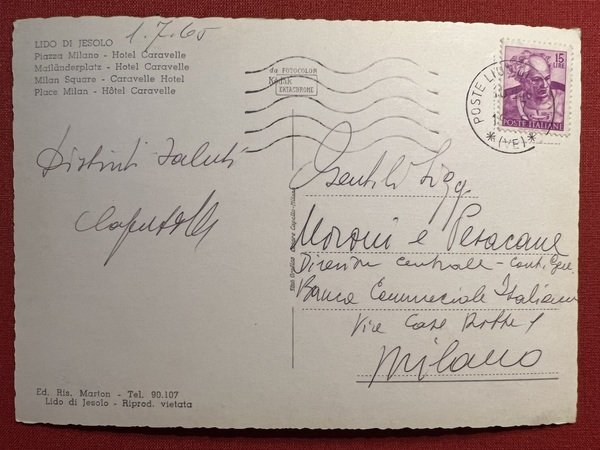 1.7.65
LIDO DI JESOLO
Piazza Milano - Hotel Caravelle
Mailänderplatz - Hotel Caravelle
Milan Square - Caravelle Hotel
Place Milan - Hôtel Caravelle
da FOTOCOLOR
Kodak
EKTACHROME
15
LIRE
POSTE ITALIANE
POSTE
*(VE)*
Distinti saluti
Gentili Sigg.
Moroni e
Direzione Centrale -
Banca Commerciale Italiana
Milano
Ed. Ris. Marton - Tel. 90.107
Lido di Jesolo - Riprod. vietata